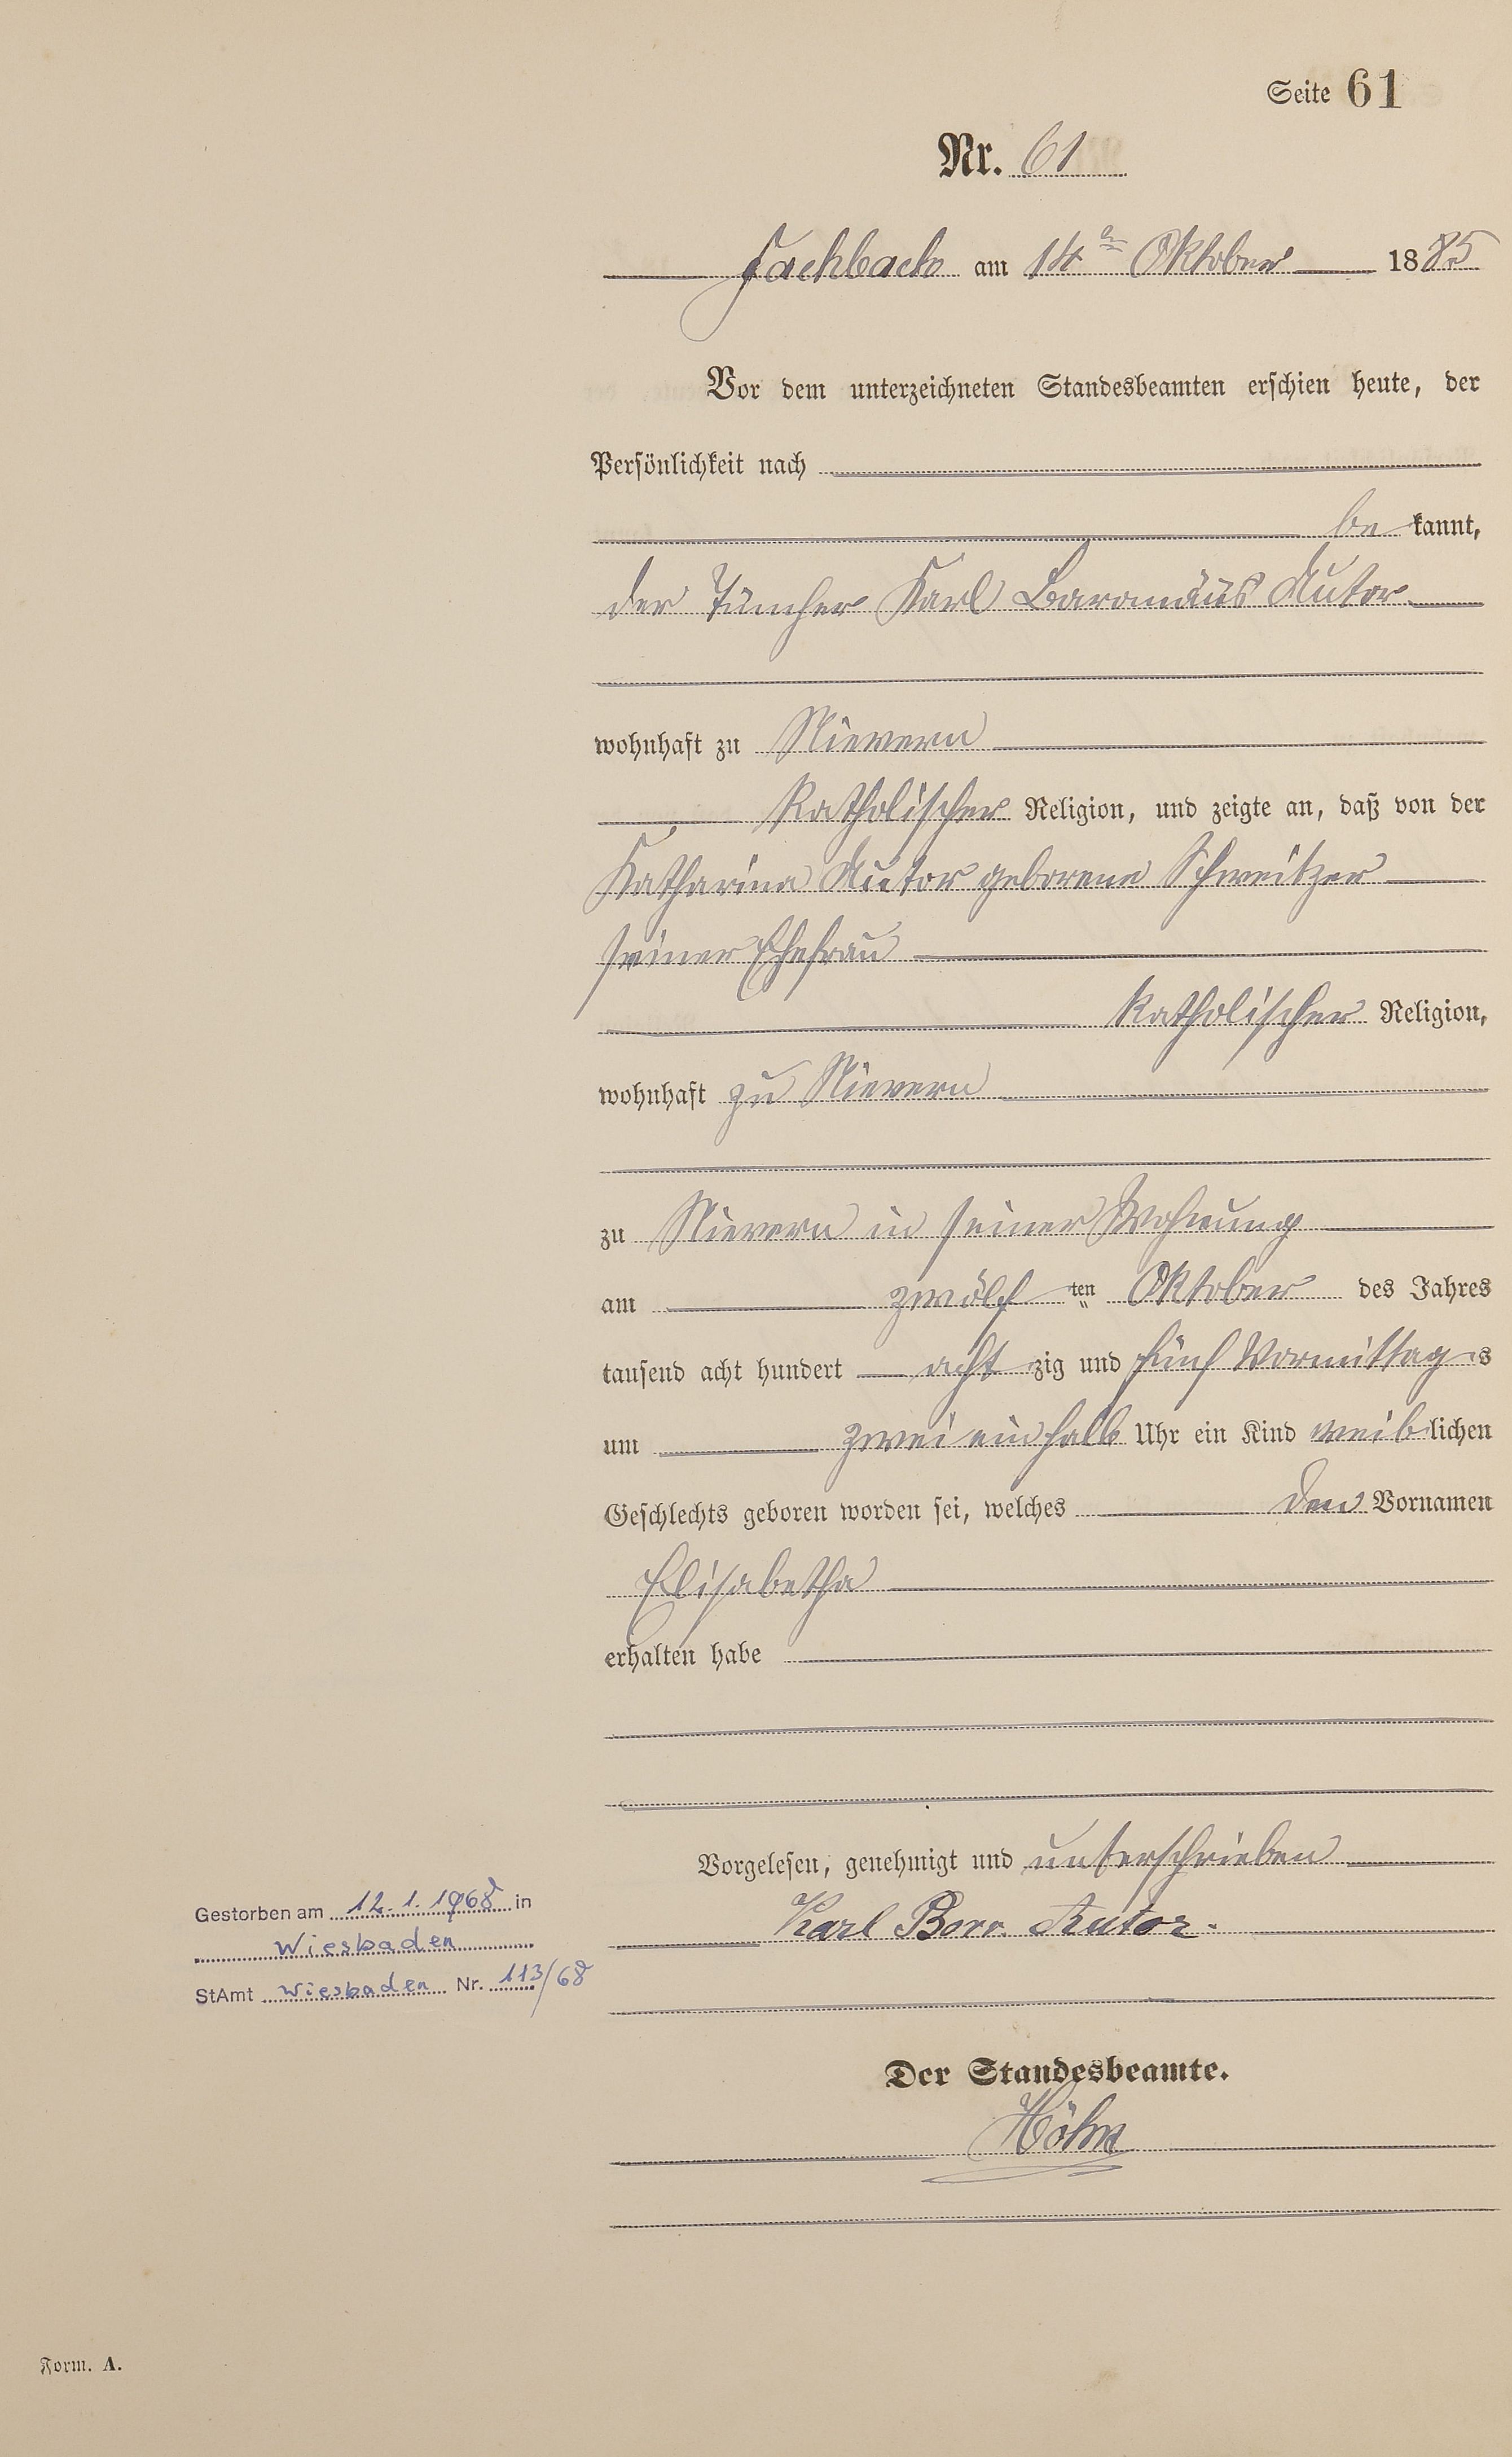 Seite 61
Nr. 61
Fachbach am 14ten Oktober 1885
Vor dem unterzeichneten Standesbeamten erschien heute, der
Persönlichkeit nach
be kannt,
der Tüncher Karl Baromäus Autor
wohnhaft zu Nievern
katholischer Religion, und zeigte an, daß von der
Katharina Autor geborene Schweitzer
seiner Ehefrau
katholischer Religion,
wohnhaft zu Nievern
zu Nievern in seiner Wohnung
am zwölf ten Oktober des Jahres
tausend acht hundert acht zig und fünf Vormittags
um zwei ein halb Uhr ein Kind weiblichen
Geschlechts geboren worden sei, welches den Vornamen
Elisabetha
erhalten habe
Vorgelesen, genehmigt und unterschrieben
Karl Borr. Autor.
Gestorben am 12.1.1968 in
Wiesbaden
StAmt Wiesbaden Nr. 113/68
Der Standesbeamte.
Höhn
Form. A.